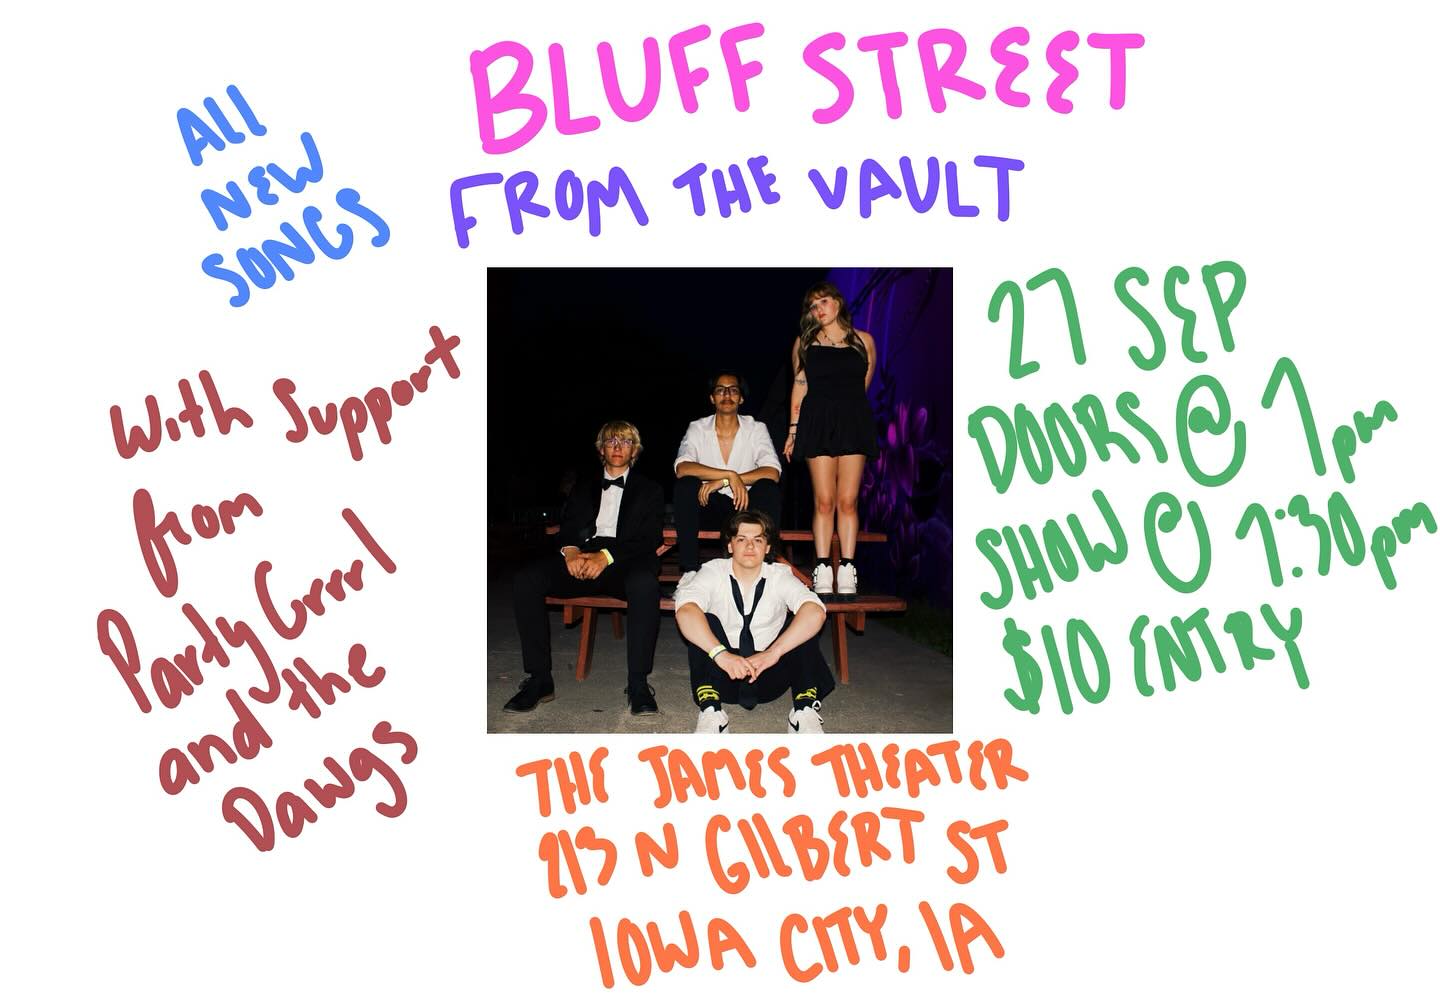 BLUFF STREET
FROM THE VAULT
ALL
NEW
SONGS
With Support
from
Party Grrrl
and the
Dawgs
27 SEP
DOORS @ 7pm
SHOW @ 7:30pm
$10 ENTRY
THE JAMES THEATER
213 N GILBERT ST
IOWA CITY, IA